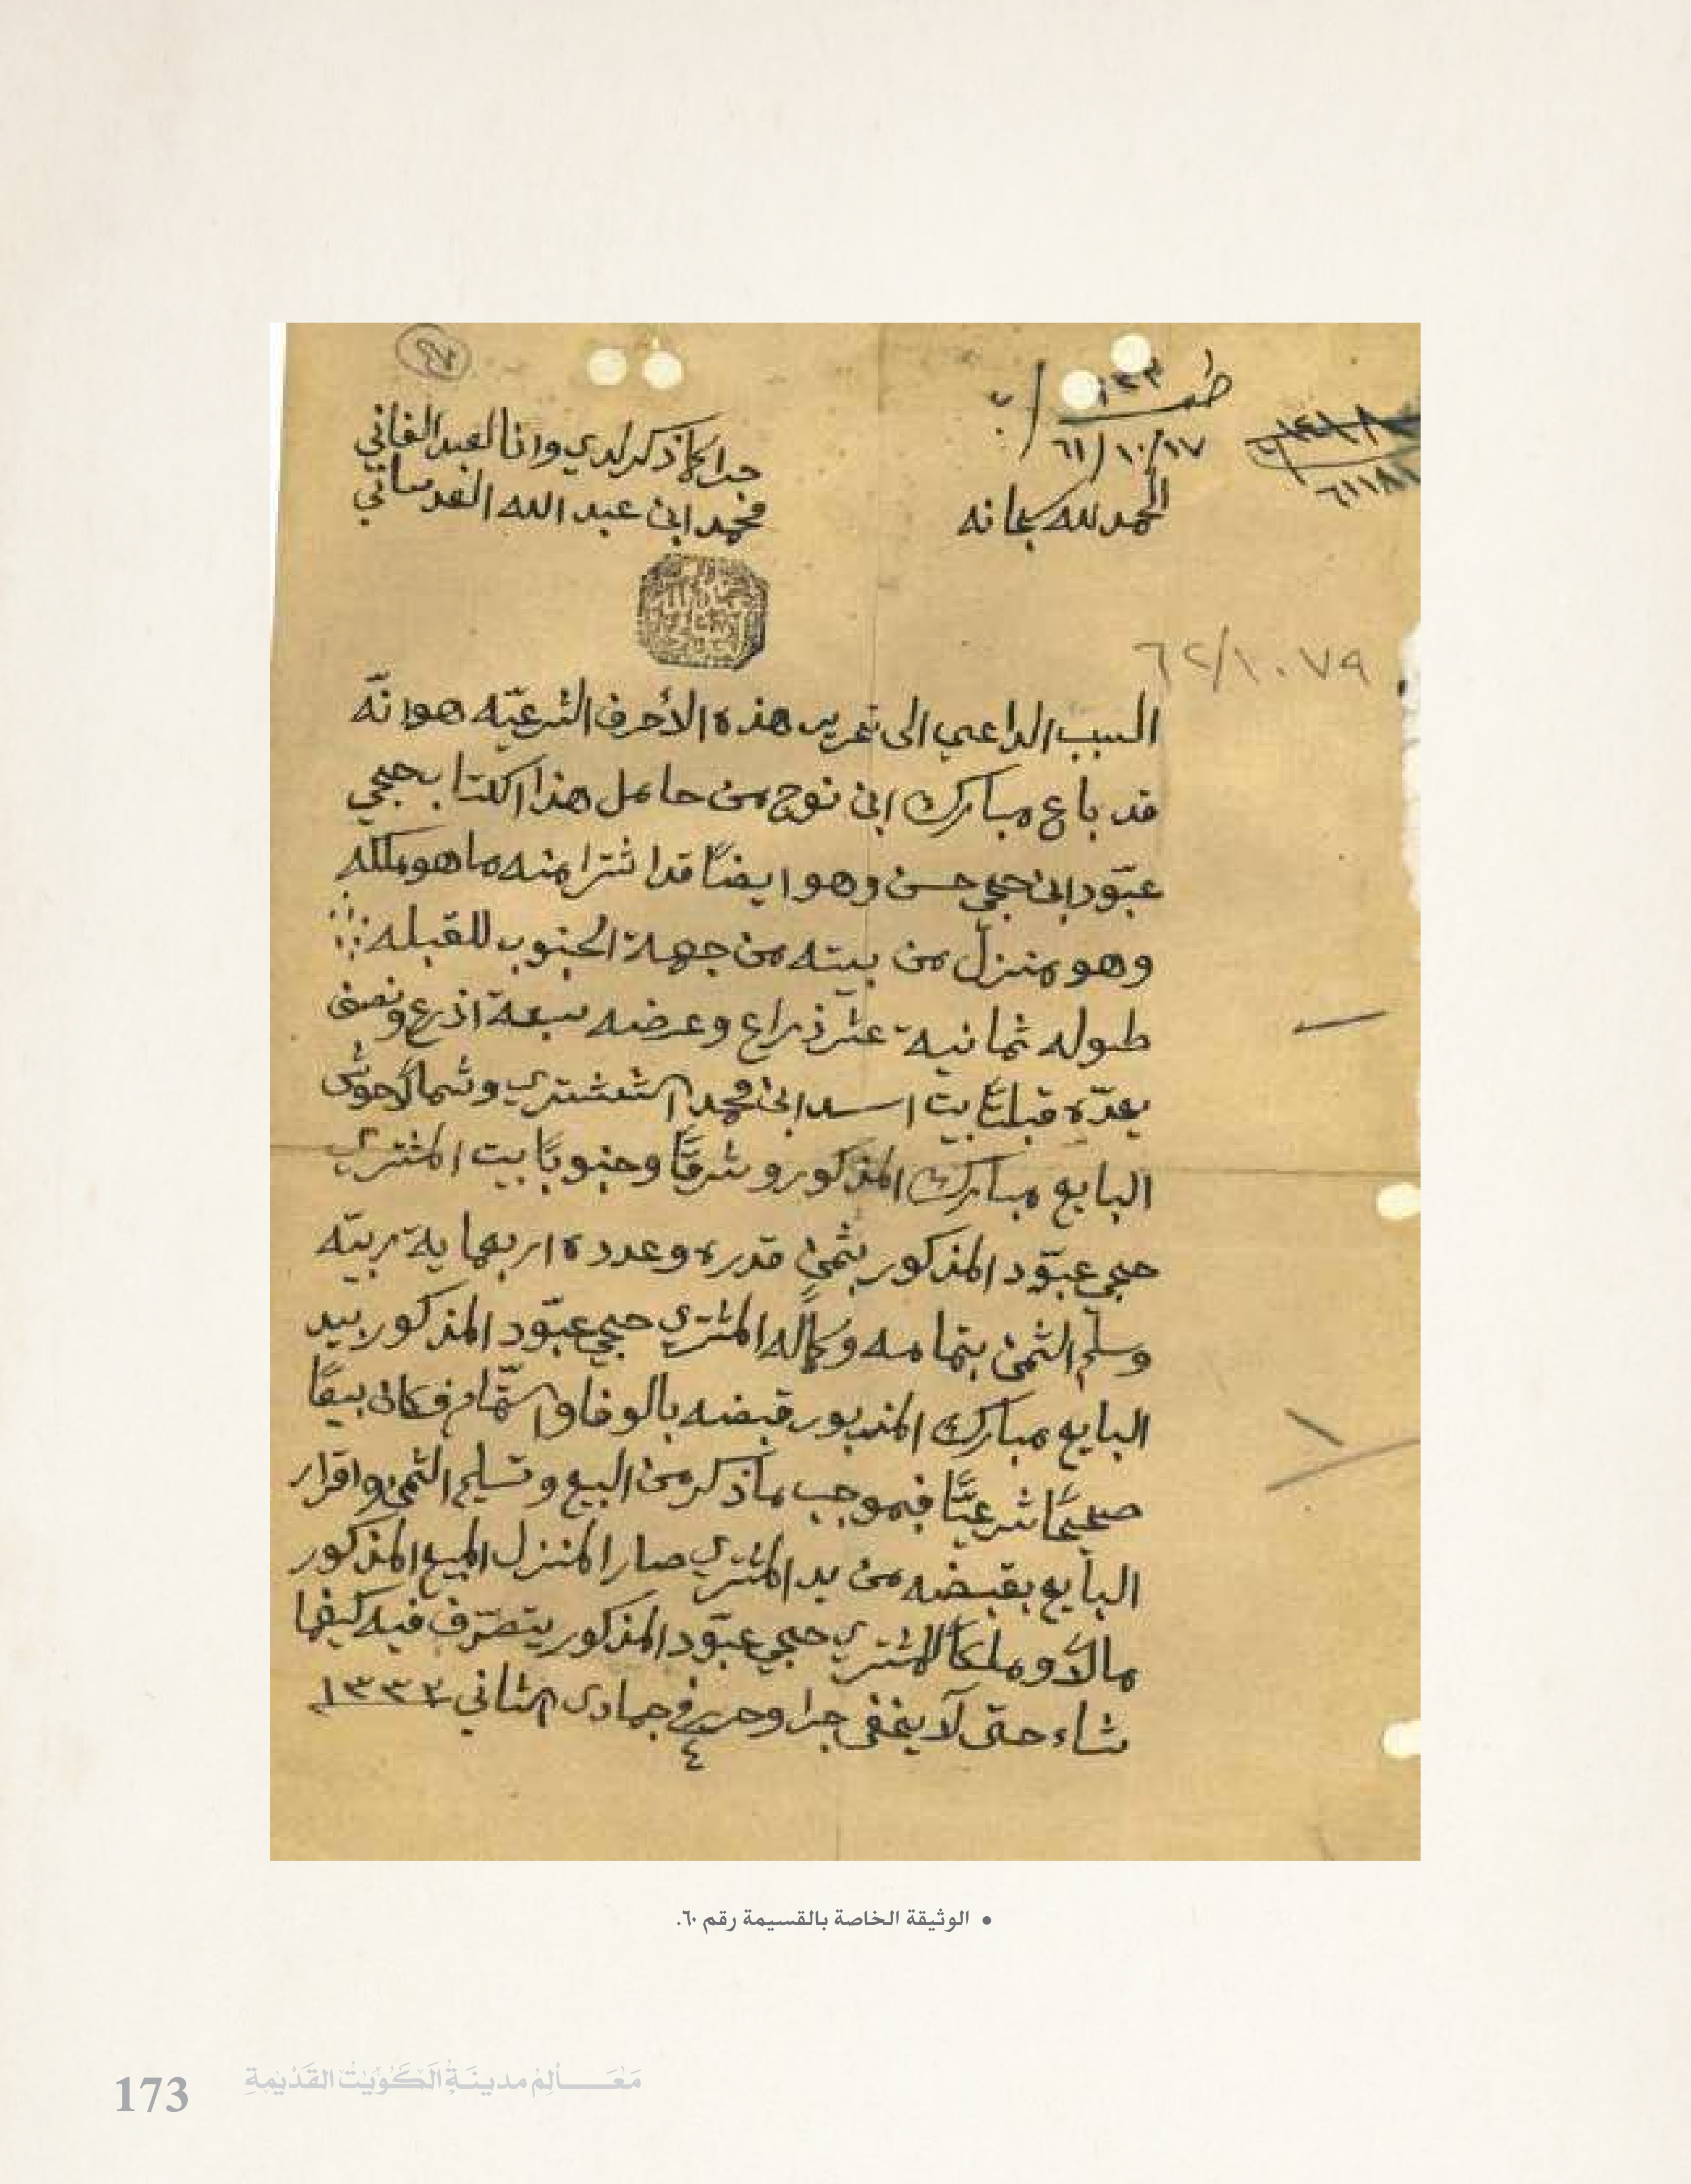 الحمد لله سبحانه
جرا كما ذكر لدي وانا العبد الفاني
محمد ابن عبد الله العدساني
٦٢/١٠٧٩
السبب الداعي الى تحرير هذه الأحرف الشرعيّه هو انّه
قد باع مبارك ابن نوح من حامل هذا الكتاب حجي
عبّود ابن حجي حسن وهو ايضًا قد اشترا منه ما هو ملكه
وهو منزل من بيته من جهة الجنوب للقبله
طوله ثمانية عشر ذراع وعرضه سبعة اذرع ونصف
يحدّه قبلتًا بيت اسد ابن محمد الششتري وشمالًا حوش
البايع مبارك المذكور وشرقًا وجنوبًا بيت المشتري
حجي عبّود المذكور بثمنٍ قدره وعدده اربعماية ربيّه
وسلم الثمن بتمامه وكماله المشتري حجي عبّود المذكور بيد
البايع مبارك المزبور قبضه بالوفا والتّمام فكان بيعًا
صحيحًا شرعيًّا فبموجب ما ذكر من البيع وتسليم الثمن واقرار
البايع بقبضه من يد المشتري صار المنزل المبيع المذكور
مالًا وملكًا للمشتري حجي عبّود المذكور يتصرّف فيه كيفما
شاء حتى لا يخفى جرا وحرر في ٤ جمادى الثاني ١٣٣٢
• الوثيقة الخاصة بالقسيمة رقم ٦٠.
173 مَعَــالِم مدينَةُ الكُوَيْتُ القَدِيمَةِ